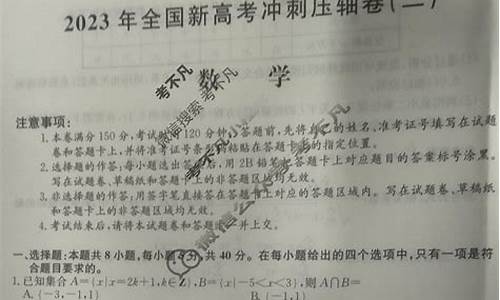 2023年全国新高考冲刺压轴卷(二)
数 学
注意事项:
1.本卷满分150分,考试时间120分钟。答题前,先将自己的姓名、准考证号填写在试题
卷和答题卡上,并将准考证号条形码粘贴在答题卡上的指定位置。
2.选择题的作答:每小题选出答案后,用2B铅笔把答题卡上对应题目的答案标号涂黑。
写在试题卷、草稿纸和答题卡上的非答题区域均无效。
3.非选择题的作答:用签字笔直接答在答题卡上对应的答题区域内。写在试题卷、草稿纸
和答题卡上的非答题区域均无效。
4.考试结束后,请将本试题卷和答题卡一并上交。
一、选择题:本题共8小题,每小题5分,共40分。在每小题给出的四个选项中,只有一项是符
合题目要求的。
1.已知集合A={x|x=2k+1,k∈Z},B={x|-5<x<3},则A∩B=
A.{-3,-1,1}
B.{-1,1}
考不凡
微信搜索考不凡